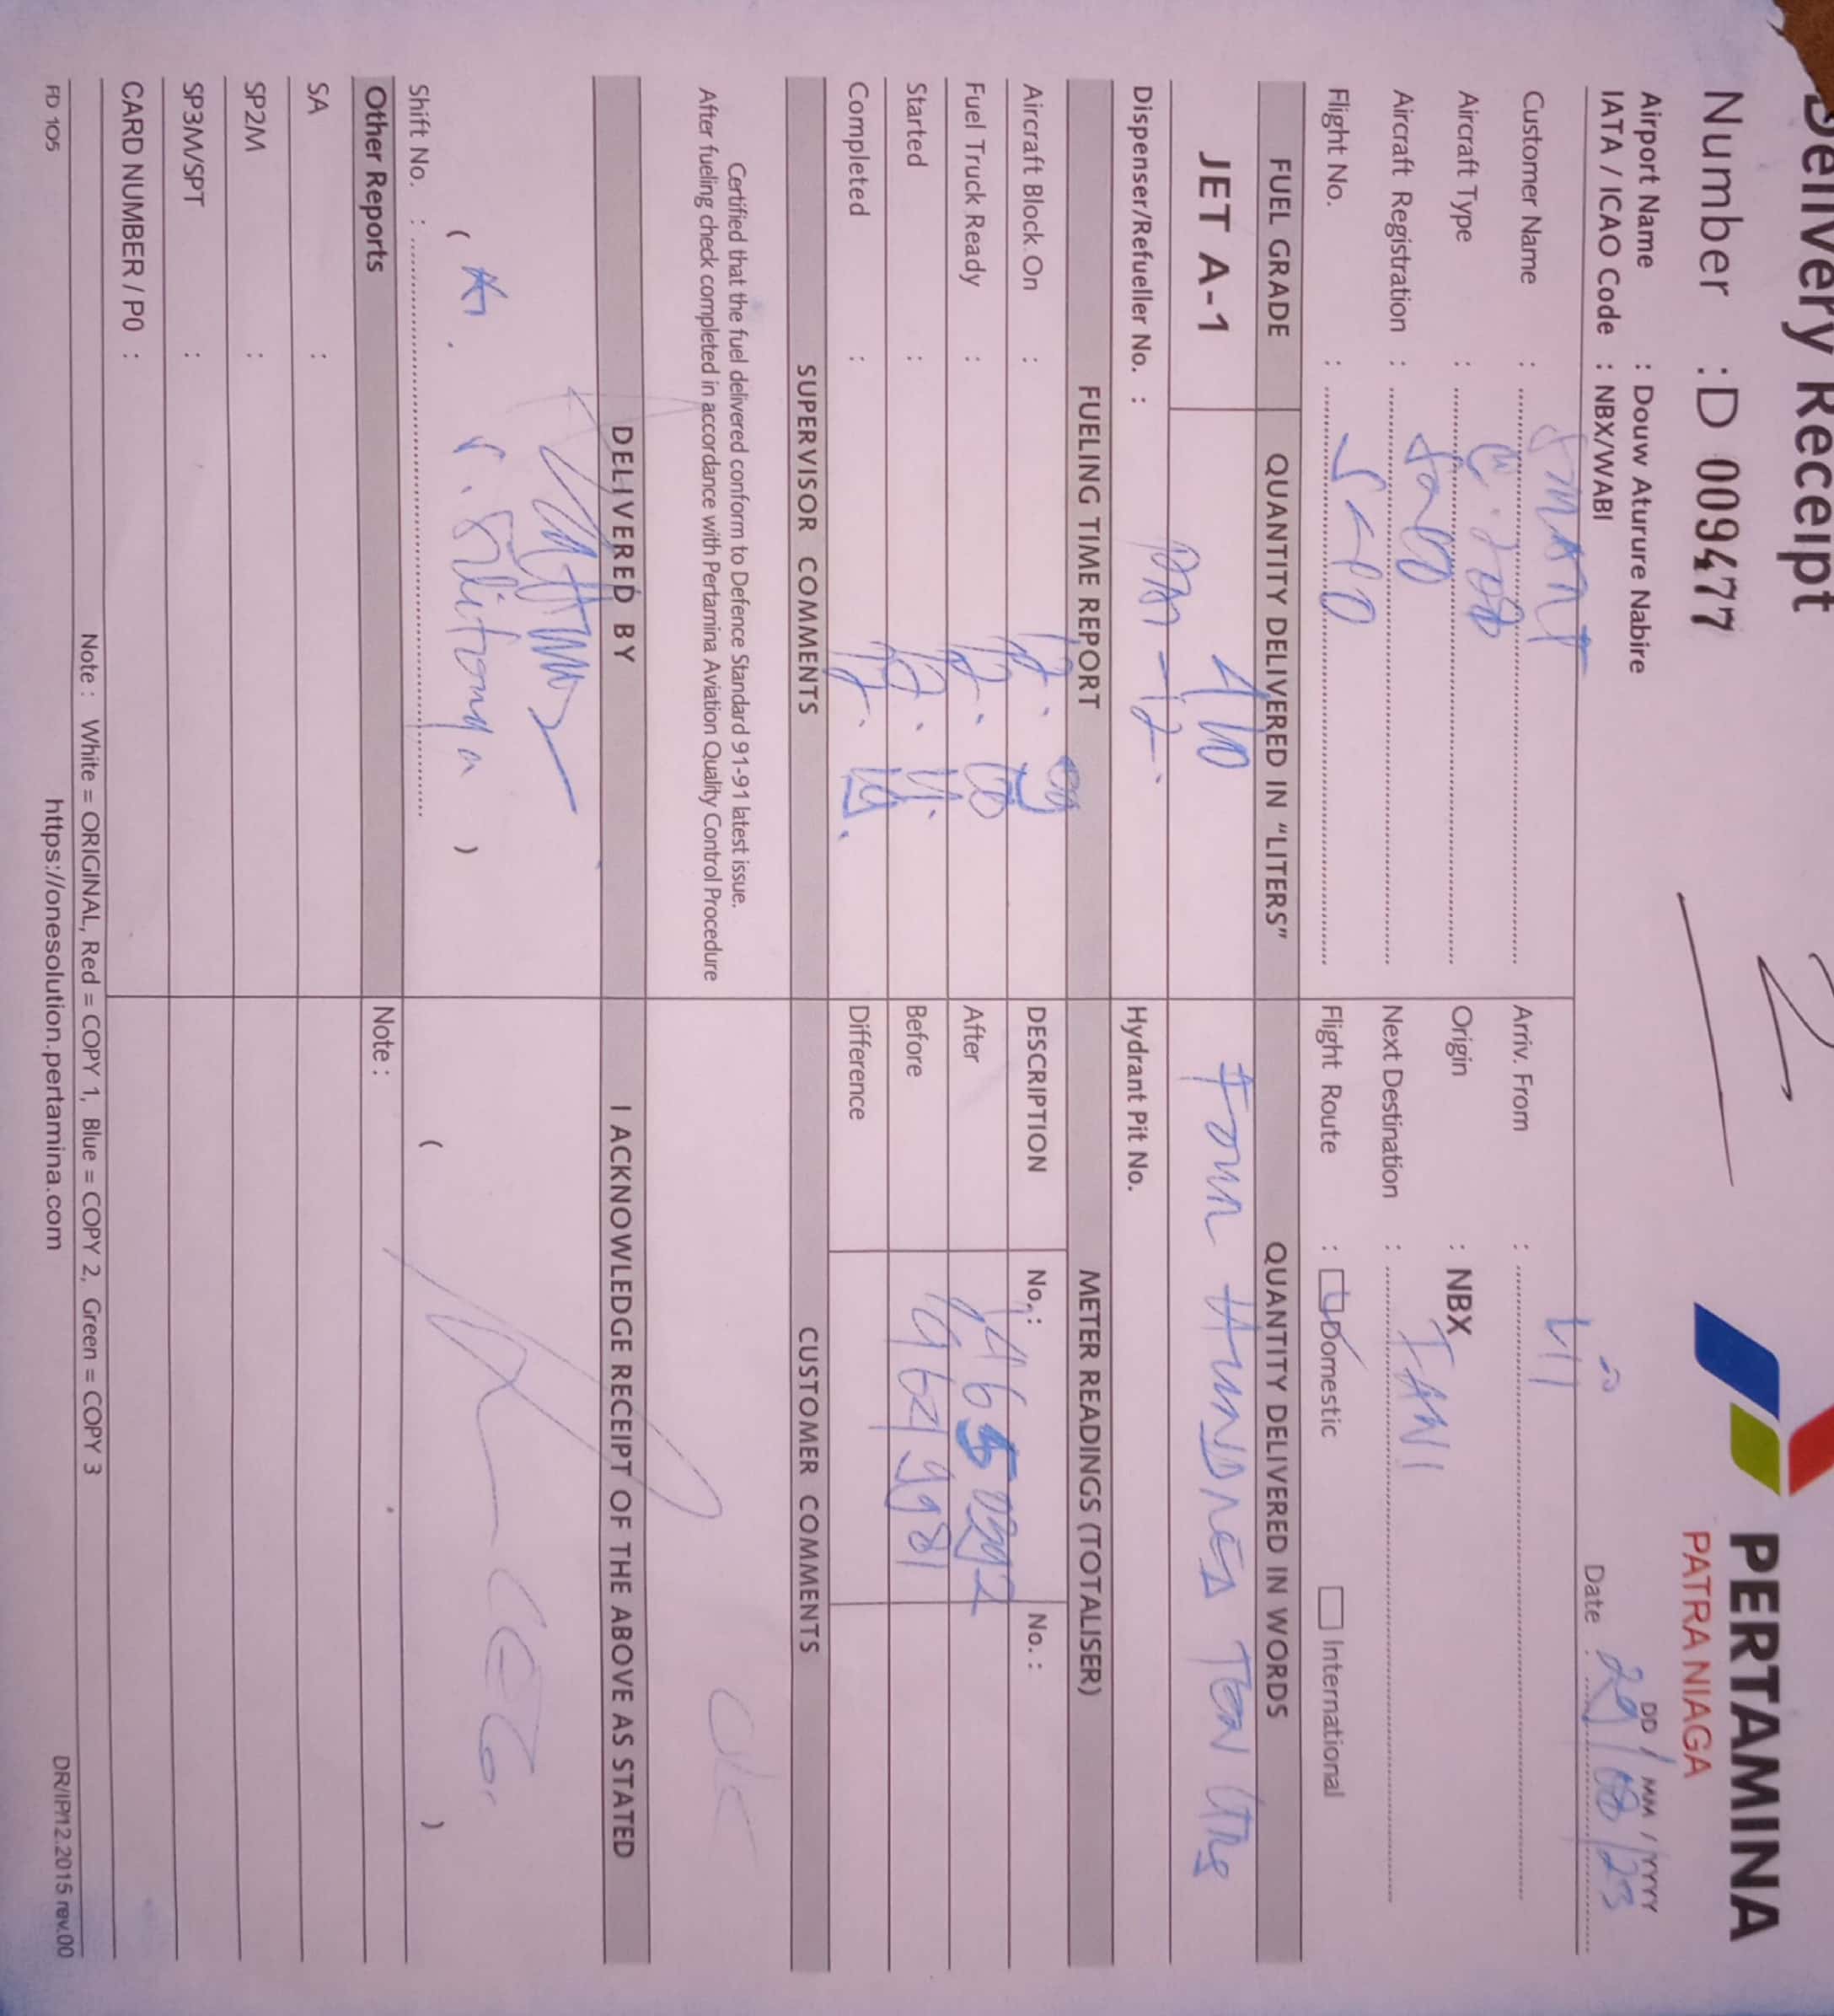 Delivery Receipt
PERTAMINA
PATRA NIAGA
Number : D 009477
Airport Name : Douw Aturure Nabire
IATA / ICAO Code : NBX/WABI
DD / MM / YYYY
Date : 29/08/23
Customer Name : SMART
Arriv. From :
Aircraft Type : C. 208
Origin : NBX
Aircraft Registration :
Next Destination :
Flight No. :
Flight Route : Domestic International
FUEL GRADE
QUANTITY DELIVERED IN "LITERS"
QUANTITY DELIVERED IN WORDS
JET A-1
410
Four Hundred Ten
Dispenser/Refueller No. :
Hydrant Pit No.
FUELING TIME REPORT
METER READINGS (TOTALISER)
Aircraft Block On :
DESCRIPTION
No. :
No. :
Fuel Truck Ready :
After
Started :
Before
Completed :
Difference
SUPERVISOR COMMENTS
CUSTOMER COMMENTS
Certified that the fuel delivered conform to Defence Standard 91-91 latest issue.
After fueling check completed in accordance with Pertamina Aviation Quality Control Procedure
OK
DELIVERED BY
I ACKNOWLEDGE RECEIPT OF THE ABOVE AS STATED
Shift No. :
Other Reports
Note :
SA :
SP2M :
SP3M/SPT :
CARD NUMBER / P0 :
Note : White = ORIGINAL, Red = COPY 1, Blue = COPY 2, Green = COPY 3
FD 105
https://onesolution.pertamina.com
DR/IP/12.2015 rev.00